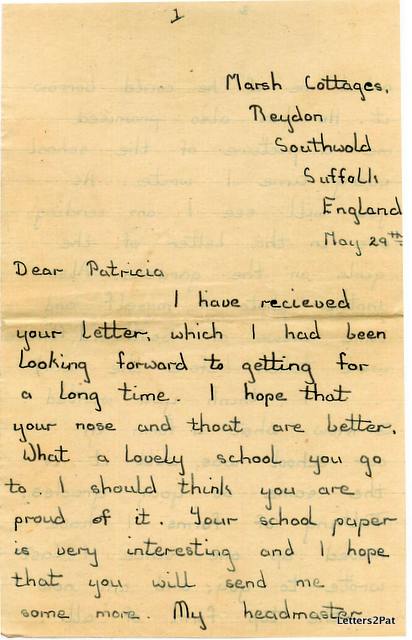 1
Marsh Cottages,
Reydon
Southwold
Suffolk
England
May 29th
Dear Patricia
I have recieved
your letter, which I had been
looking forward to getting for
a long time. I hope that
your nose and thoat are better.
What a lovely school you go
to I should think you are
proud of it. Your school paper
is very interesting and I hope
that you will send me
some more. My headmaster
Letters2Pat